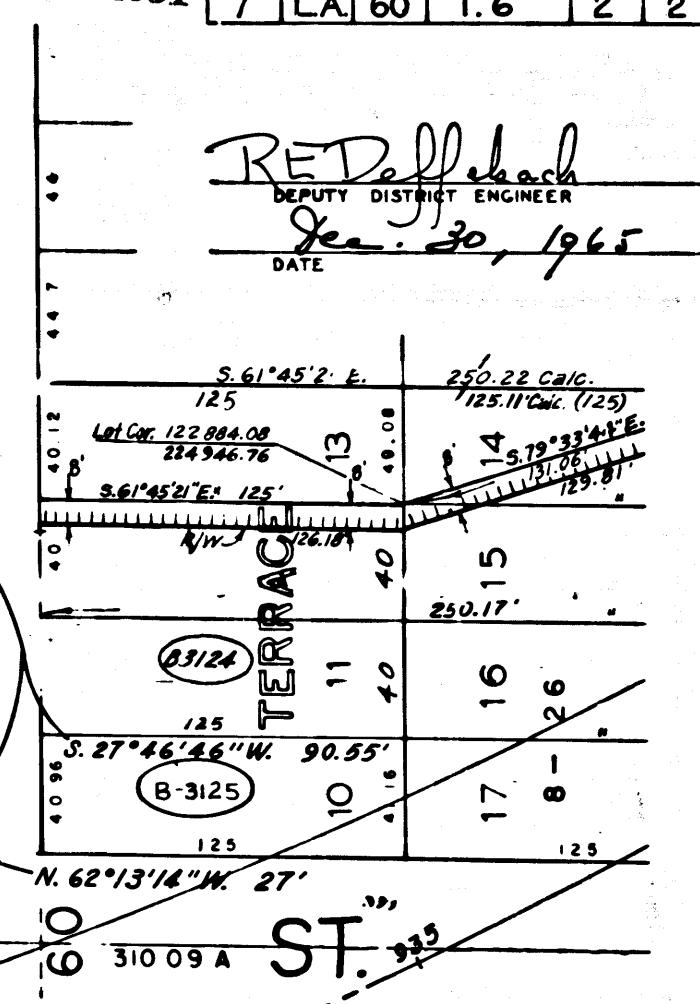 7 L.A. 60 1.6 2 2
REDeffebach
DEPUTY DISTRICT ENGINEER
Dec. 30, 1965
DATE
46
44 7
S. 61°45'2 E.
250.22 Calc.
125
125.11' Calc. (125)
40.12
Lot Cor. 122 884.08
224 946.76
13
49.08
14
S. 79° 33'
E.
8'
8'
8'
131.06'
129.81'
S.61°45'21"E. 125'
"
R/W
126.18'
TERRACE
40
40
15
250.17'
"
B3124
11
40
16
26
125
"
S. 27°46'46"W. 90.55'
40 96
B-3125
10
16
17
8-
125
125
N. 62°13'14"W. 27'
60
310 09 A
ST.
935